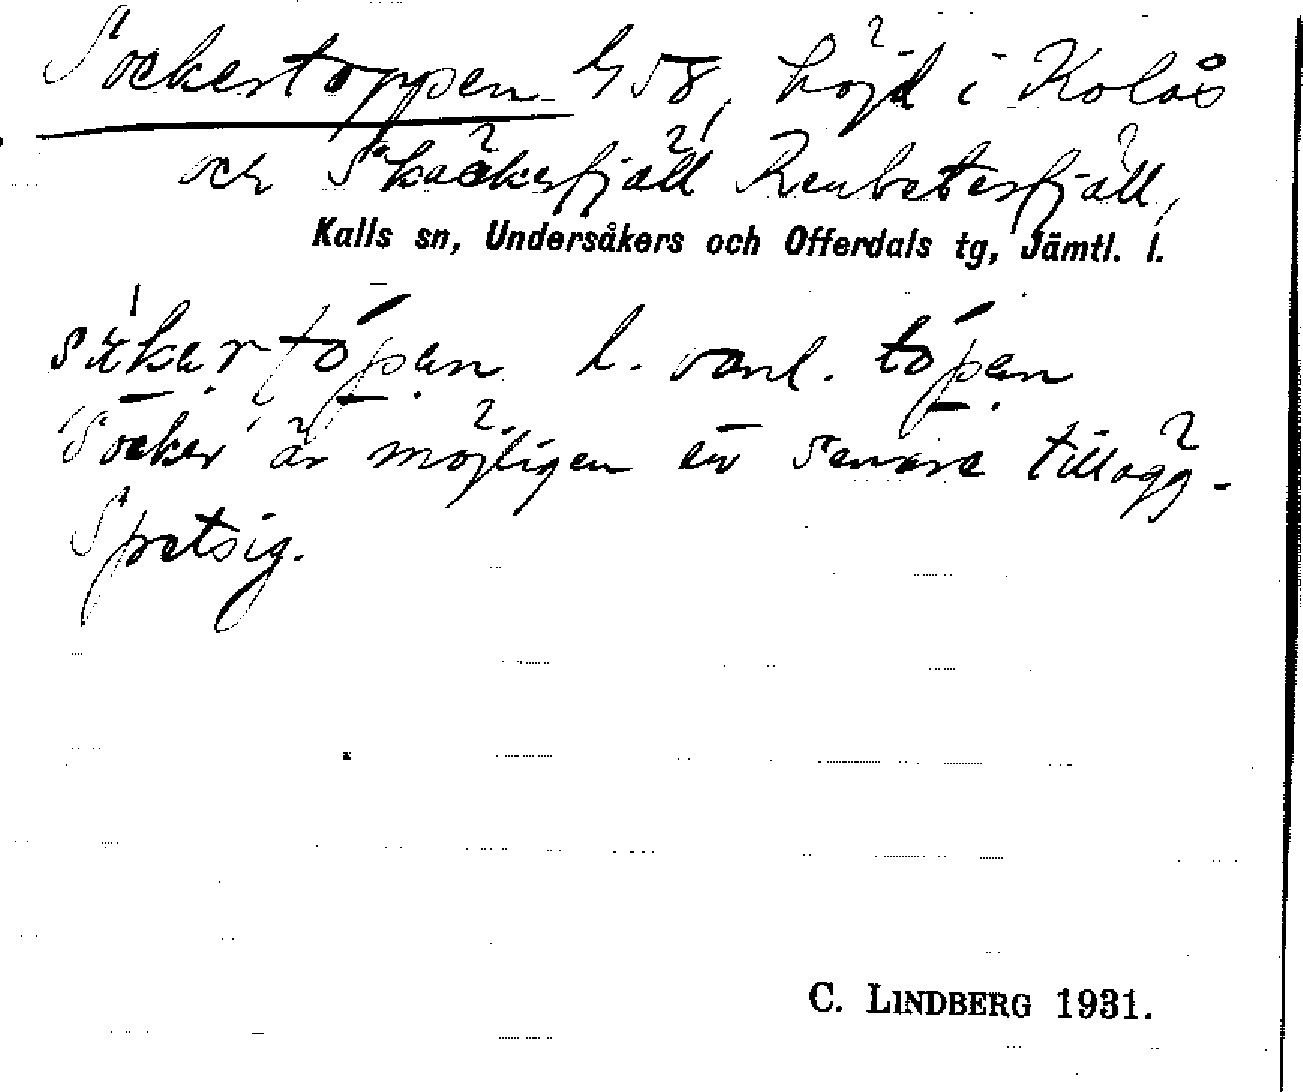 Sockertoppen G 58, höjd i Kolås
och Skäckerfjäll Renbetesfjäll,
Kalls sn, Undersåkers och Offerdals tg, Jämtl. l.
l. vanl.
'Socker' är möjligen en senare tillägg.
Spetsig.
C. LINDBERG 1931.